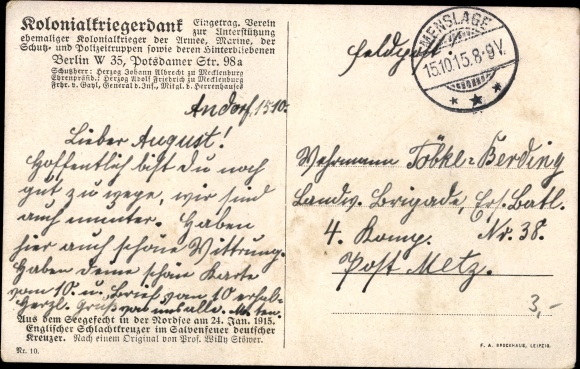 Kolonialkriegerdank Eingetrag. Verein
zur Unterstützung
ehemaliger Kolonialkrieger der Armee, Marine, der
Schutz- und Polizeitruppen sowie deren Hinterbliebenen
Berlin W 35, Potsdamer Str. 98a
Schutzherr: Herzog Johann Albrecht zu Mecklenburg
Ehrenpräsid.: Herzog Adolf Friedrich zu Mecklenburg
Frhr. v. Gayl, General d. Inf., Mitgl. d. Herrenhauses
Andorf, 15.10.
Lieber August!
Hoffentlich bist du noch
gut zu wege, wir sind
auch munter. Haben
hier auch schöne Wittrung.
Haben deine schön Karte
vom 10. u. Brief vom 10 erhal-
Herzl. Gruß von uns alle.
Aus dem Seegefecht in der Nordsee am 24. Jan. 1915.
Englischer Schlachtkreuzer im Salvenfeuer deutscher
Kreuzer. Nach einem Original von Prof. Willy Stöwer.
Nr. 10.
Feldpost.
MENSLAGE
15.10.15.8-9V.
Wehrmann Többe-Berding
Landw. Brigade, Ers. Batl.
4. Komp. Nr. 38.
Post Metz.
3,-
F. A. BROCKHAUS, LEIPZIG.